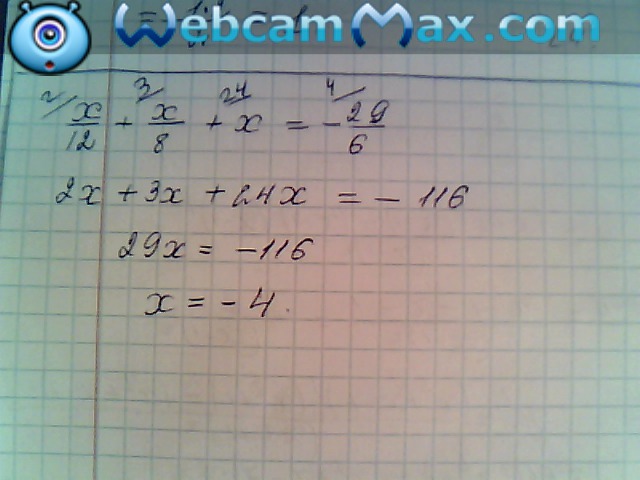 WebcamMax.com
2/ 3/ 24 4/
x/12 + x/8 + x = - 29/6
2x + 3x + 24x = - 116
29x = -116
x = - 4.